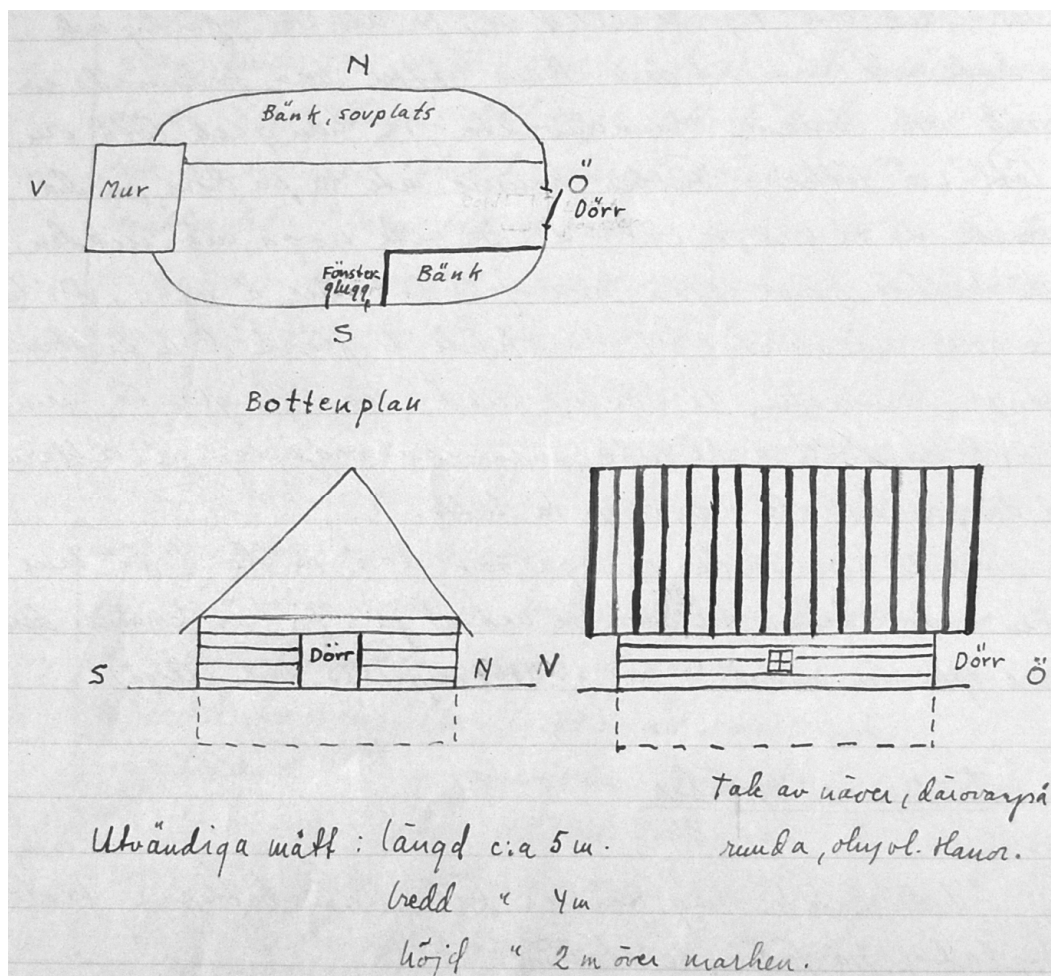 N
Bänk, sovplats
V
Mur
Ö
Dörr
Fönster
glugg
Bänk
S
Bottenplan
S
Dörr
N
V
Dörr
Ö
Tak av näver, därovanpå
runda, okluvl. stanor.
Utvändiga mått: längd c:a 5 m.
bredd " 4 m
höjd " 2 m över marken.